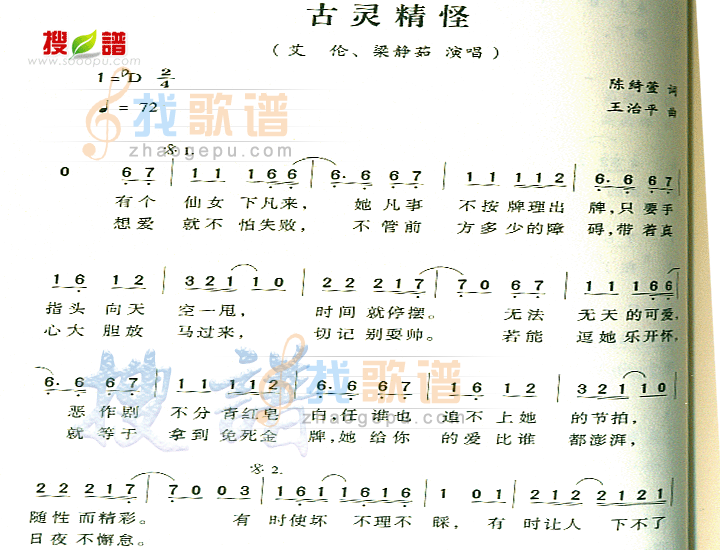 古灵精怪
搜 谱
www.sooopu.com
(艾 伦、梁静茹 演唱)
1=ᵇD 2/4
♩= 72
陈绮萱 词
王治平 曲
找歌谱
zhaogepu.com
𝄋 1.
0 6 7 | 1 1 1 6 6 | 6. 6 6 7 | 1 1 1 1 2 | 6. 6 6 7 |
有个 仙女 下凡来, 她 凡事 不按牌理出 牌,只 要手
想爱 就不 怕失败, 不 管前 方多少的障 碍,带 着真
1 6 1 2 | 3 2 1 1 0 | 2 2 2 2 1 7 | 7 0 6 7 | 1 1 1 6 6 |
指头 向天 空一甩, 时间 就停摆。 无法 无天的可爱,
心大 胆放 马过来, 切记 别耍帅。 若能 逗她乐开怀,
6. 6 6 7 | 1 1 1 1 2 | 6. 6 6 7 | 1 6 1 2 | 3 2 1 1 0 |
恶 作剧 不分青红皂 白任谁也 追不上她 的节拍,
就 等于 拿到免死金 牌,她给你 的爱比谁 都澎湃,
找歌谱
zhaogepu.com
𝄋 2.
2 2 2 2 1 7 | 7 0 0 3 | 1 6 1 1 6 1 6 | 1 0 1 | 2 1 2 2 1 2 1 |
随性而精彩。 有 时使坏 不理不 睬,有 时让人 下不了
日夜不懈怠。